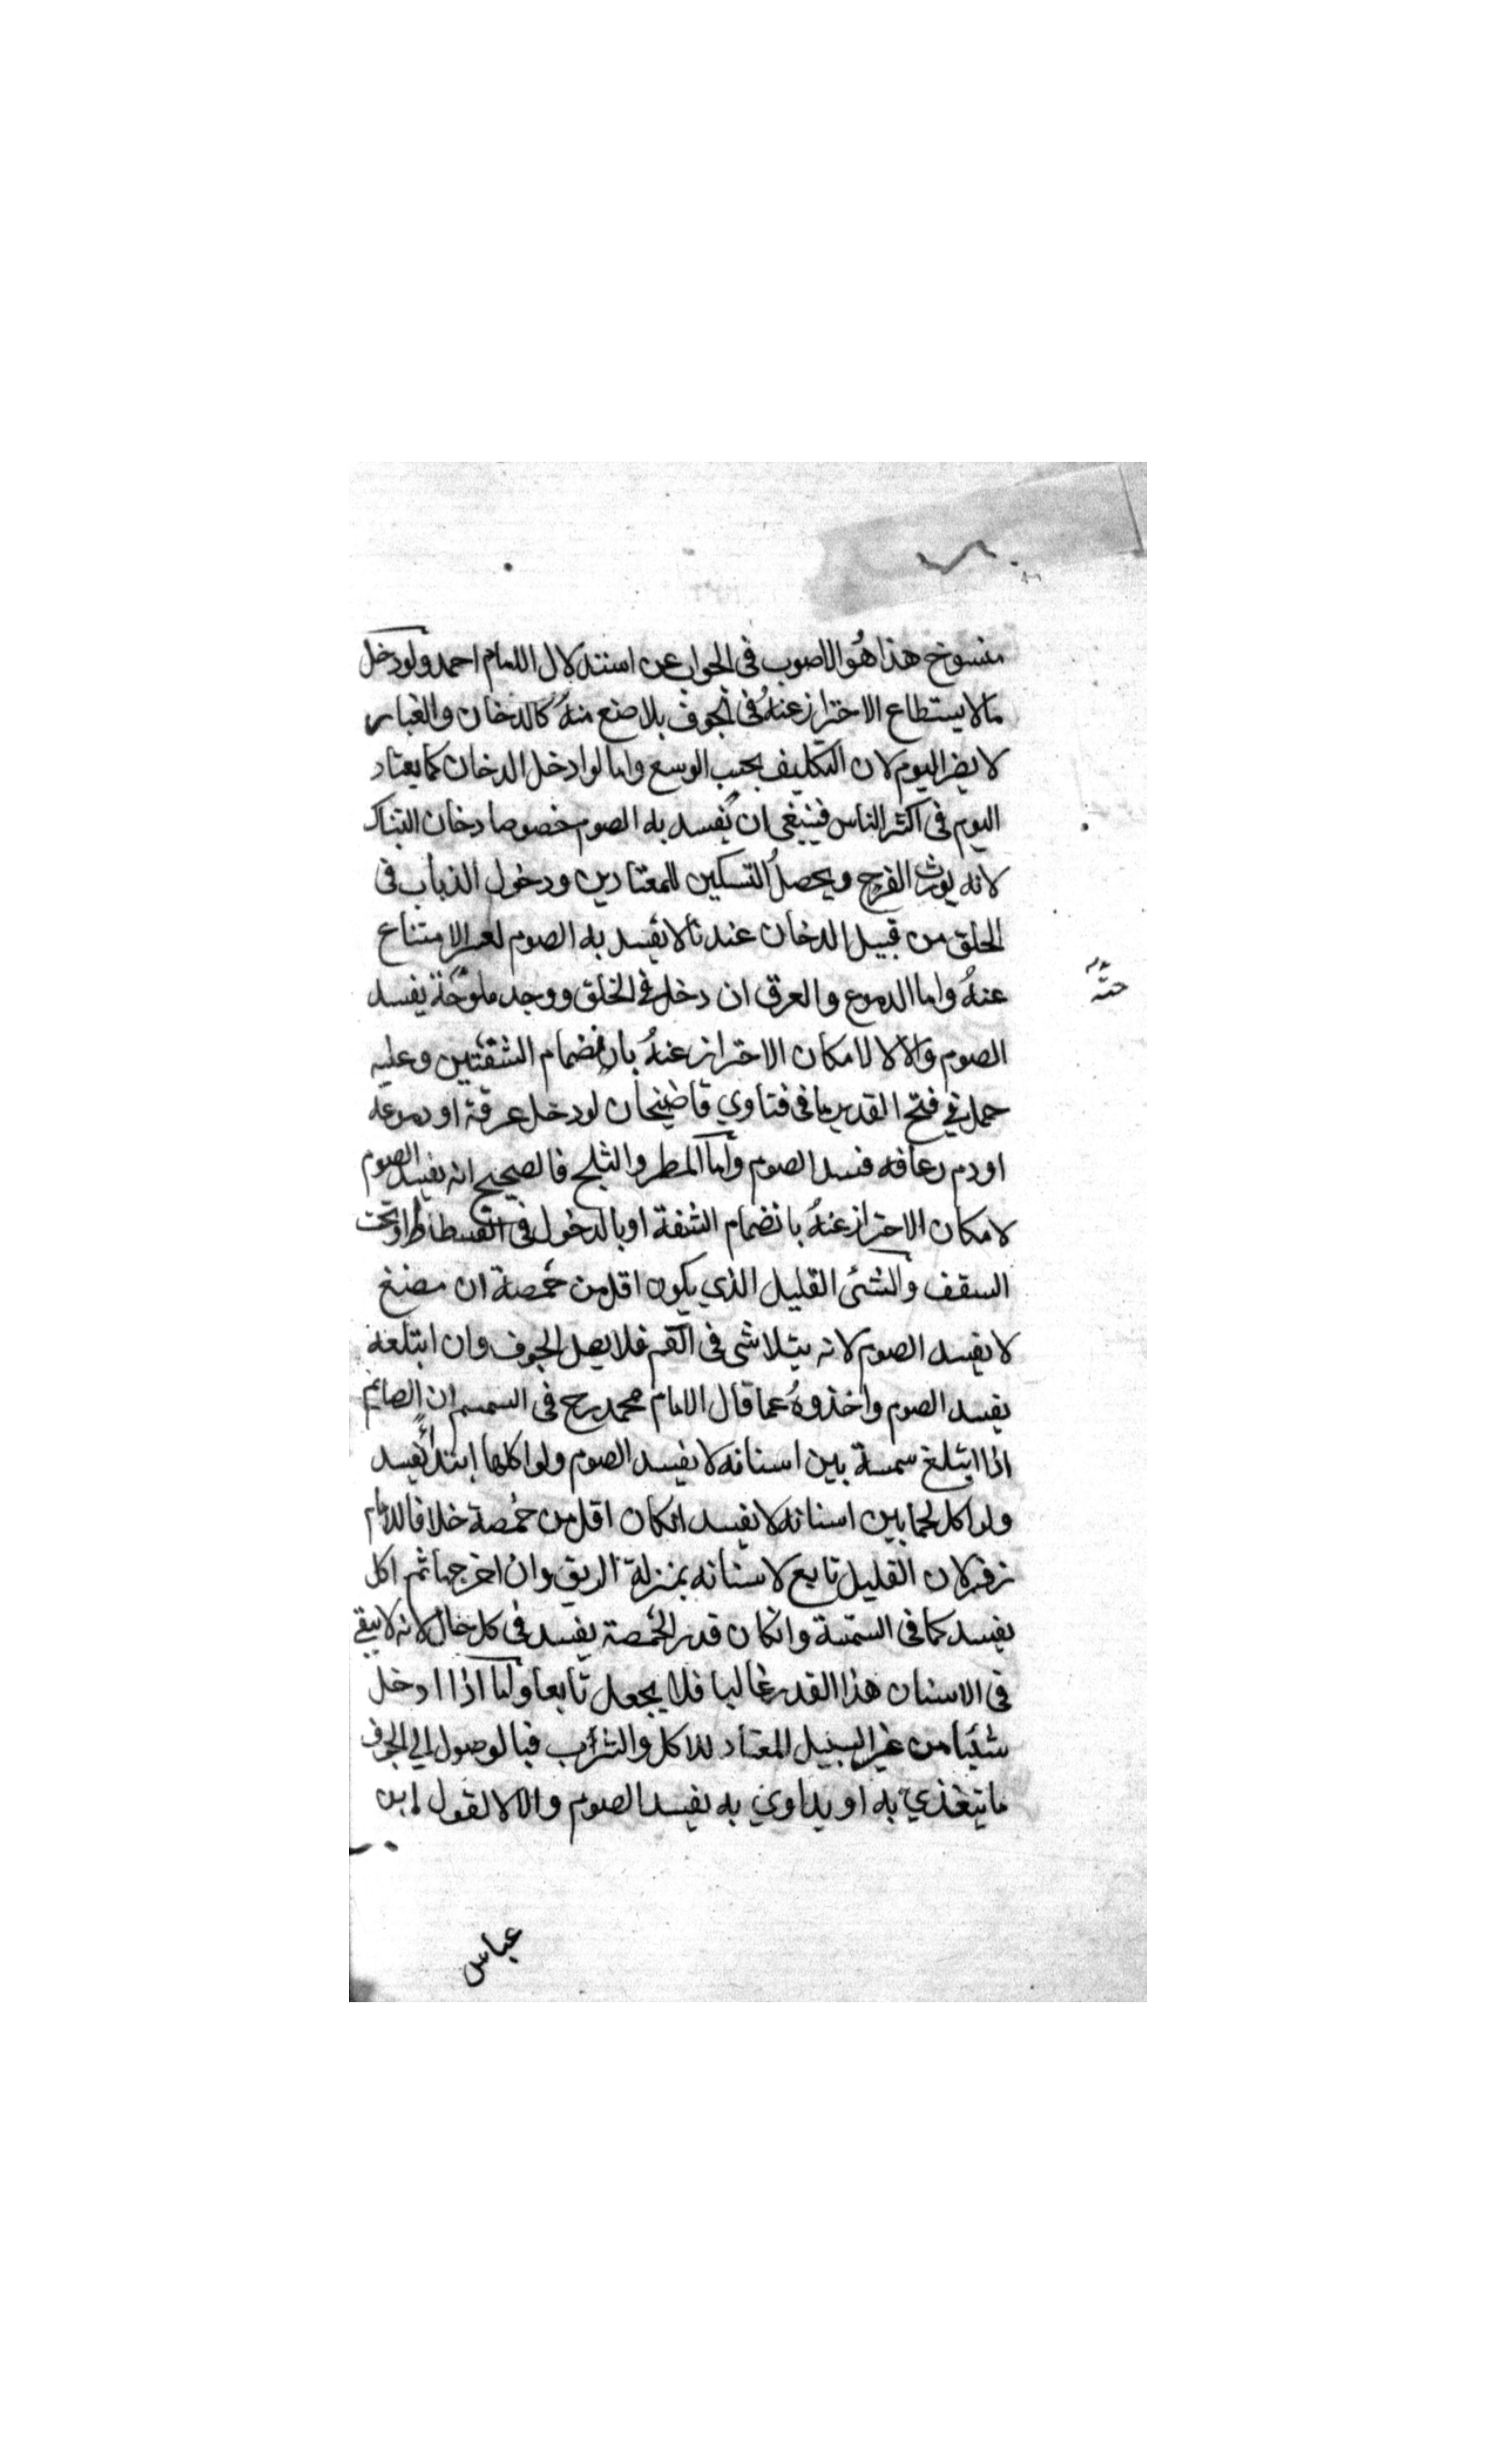 منسوخ هذا هو الاصوب فى الجواب عن استدلال الامام احمد ولو دخل
ما لا يستطاع الاحتراز عنه فى الجوف بلا صنع منه كالدخان والغبار
لا يضر اليوم لان التكليف بحسب الوسع واما لو ادخل الدخان كما يعتاد
اليوم فى اكثر الناس فينبغى ان يفسد به الصوم خصوصا دخان التنباك
لانه يورث الفرح ويحصل التسكين للمعتادين ودخول الذباب فى
الحلق من قبيل الدخان عندنا لا يفسد به الصوم لعسر الامتناع
عنه واما الدموع والعرق ان دخل فى الحلق ووجد ملوحة يفسد
الصوم والا لا لامكان الاحتراز عنه بان انضمام الشفتين وعليه
حمل في فتح القدير ما فى فتاوي قاضيخان لو دخل عرقة او دموعه
او دم رعافه فسد الصوم واما المطر والثلج فالصحيح انه يفسد الصوم
لامكان الاحتراز عنه بانضمام الشفة او بالدخول فى الفسطاط او تحت
السقف والشئ القليل الذي يكون اقل من حمصة ان مضغ
لا يفسد الصوم لانه يتلاشى فى الفم فلا يصل الجوف وان ابتلعه
يفسد الصوم واخذوه عما قال الامام محمد رح فى السمسم ان الصائم
اذا ابتلع سمسة بين اسنانه لا يفسد الصوم ولو اكلها ابتداً يفسد
ولو اكل لحما بين اسنانه لا يفسد انكان اقل من حمصة خلافا للامام
زفر لان القليل تابع لاسنانه بمنزلة الريق وان اخرجها ثم اكل
يفسد كما فى السمسة وانكان قدر الحمصة يفسد فى كل حال لانه لا يبقى
فى الاسنان هذا القدر غالبا فلا يجعل تابعا واما اذا ادخل
شيئا من غير السبيل المعتاد للاكل والشراب فبالوصول الي الجوف
ما يتغذي به او يداوي به يفسد الصوم والا لا لقول ابن
عباس